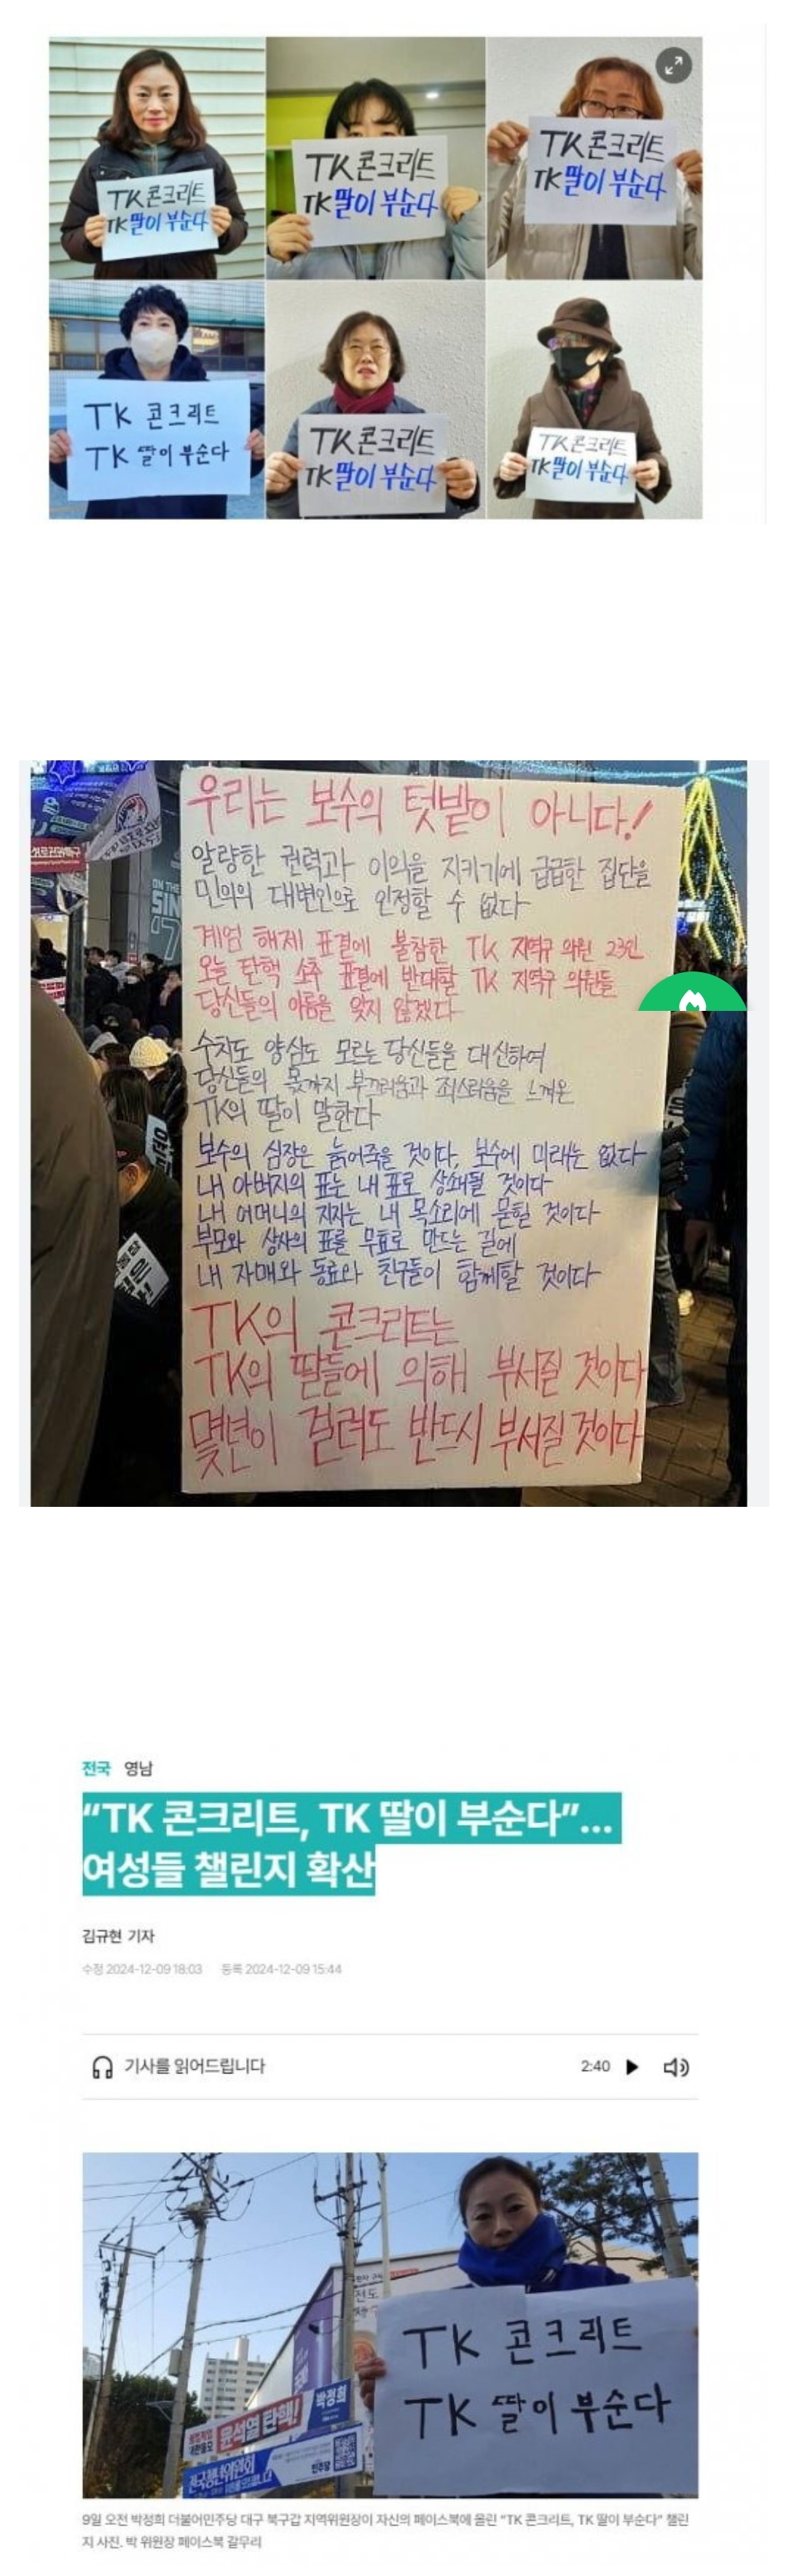 TK콘크리트
TK딸이 부순다
TK콘크리트
TK딸이 부순다
TK콘크리트
TK딸이 부순다
TK 콘크리트
TK 딸이 부순다
TK콘크리트
TK딸이 부순다
TK콘크리트
TK딸이 부순다
우리는 보수의 텃밭이 아니다!
알량한 권력과 이익을 지키기에 급급한 집단을
민의의 대변인으로 인정할 수 없다
계엄 해제 표결에 불참한 TK 지역구 의원 23인
오늘 탄핵 소추 표결에 반대할 TK 지역구 의원들
당신들의 이름을 잊지 않겠다
수치도 양심도 모르는 당신들을 대신하여
당신들의 몫까지 부끄러움과 죄스러움을 느껴온
TK의 딸이 말한다
보수의 심장은 늙어죽을 것이다, 보수에 미래는 없다
내 아버지의 표는 내 표로 상쇄될 것이다
내 어머니의 지지는 내 목소리에 묻힐 것이다
부모와 상사의 표를 무효로 만드는 길에
내 자매와 동료와 친구들이 함께할 것이다
TK의 콘크리트는
TK의 딸들에 의해 부서질 것이다
몇년이 걸려도 반드시 부서질 것이다
ON THE
SIN
'7
전국 영남
“TK 콘크리트, TK 딸이 부순다”…
여성들 챌린지 확산
김규현 기자
수정 2024-12-09 18:03 등록 2024-12-09 15:44
기사를 읽어드립니다 2:40
TK 콘크리트
TK 딸이 부순다
윤석열 탄핵!
박정희
전국청년위원회
민주당
9일 오전 박정희 더불어민주당 대구 북구갑 지역위원장이 자신의 페이스북에 올린 “TK 콘크리트, TK 딸이 부순다” 챌린
지 사진. 박 위원장 페이스북 갈무리